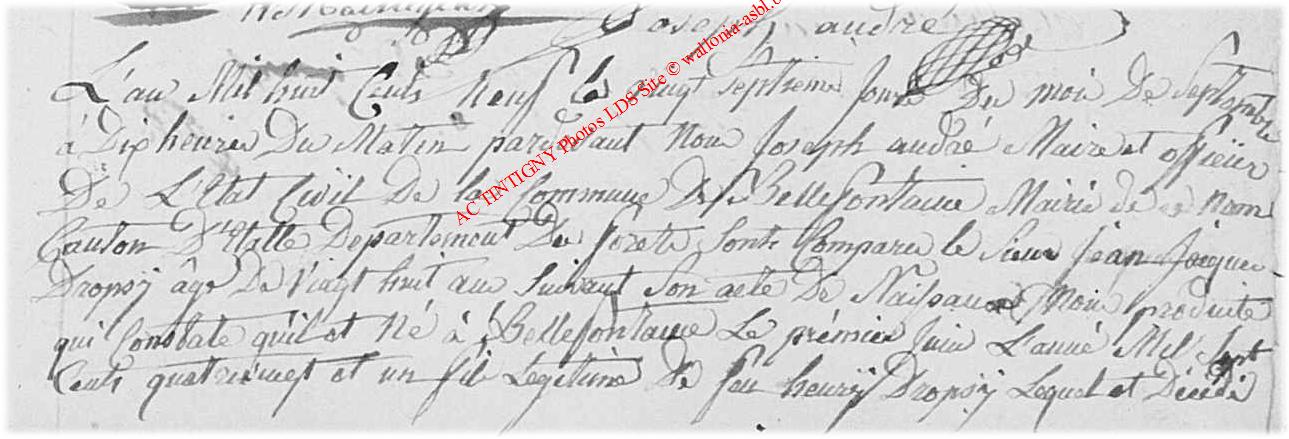 Joseph andré
L'an Mil huit Cents Neuf le vingt Septieme Jour Du moi De Septembre
à Dix heures Du Matin pardevant Nou Joseph andré Maire et officier
De L'Etat Civil De la Commune De Bellefontaine Mairie de ce Nom
Canton D'Etalle Departement De foret Sont Comparu le Sieur Jean Jacque
Dropsÿ âge De vingt huit an Suivant Son acte De Naissance Nou produite
qui Constate qu'il et Né à Bellefontaine Le prémier Juin L'anné Mil Sept
Cents quatrevingt et un fils Legitime De feu henrÿ Dropsÿ Lequel et Décédé
AC TINTIGNY Photos LDS Site © wallonia-asbl.